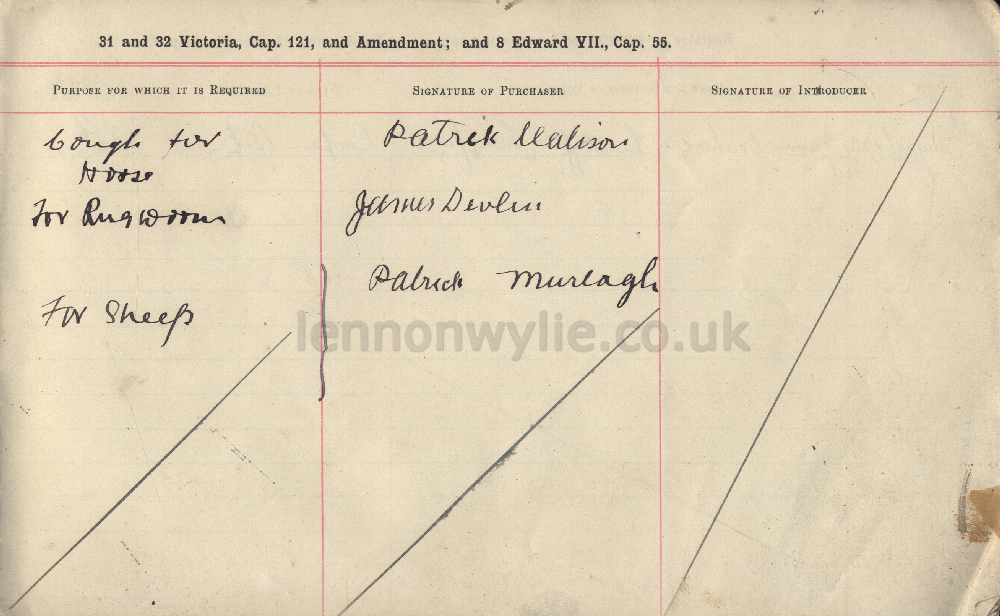 31 and 32 Victoria, Cap. 121, and Amendment; and 8 Edward VII., Cap. 55.
PURPOSE FOR WHICH IT IS REQUIRED
SIGNATURE OF PURCHASER
SIGNATURE OF INTRODUCER
Cough for
Horse
Patrick
For Ringworm
James Devlin
Patrick Murtagh
For Sheep
lennonwylie.co.uk